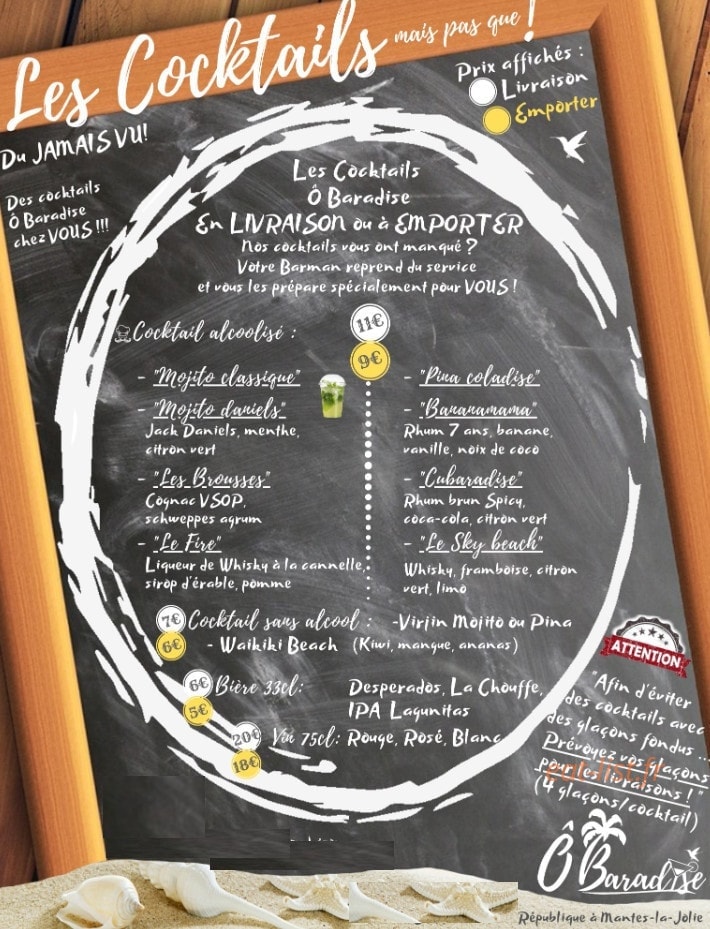 Les Cocktails mais pas que !
Prix affichés :
Livraison
Emporter
Du JAMAIS VU!
Des cocktails
Ô Baradise
chez VOUS !!!
Les Cocktails
Ô Baradise
En LIVRAISON ou à EMPORTER
Nos cocktails vous ont manqué ?
Votre Barman reprend du service
et vous les prépare spécialement pour VOUS !
Cocktail alcoolisé :
11€
9€
- "Mojito classique"
- "Mojito daniels"
Jack Daniels, menthe,
citron vert
- "Les Brousses"
Cognac VSOP,
schweppes agrum
- "Le Fire"
Liqueur de Whisky à la cannelle,
sirop d'érable, pomme
- "Pina coladise"
- "Bananamama"
Rhum 7 ans, banane,
vanille, noix de coco
- "Cubaradise"
Rhum brun Spicy,
coca-cola, citron vert
- "Le Sky beach"
Whisky, framboise, citron
vert, limo
7€ Cocktail sans alcool : -Virjin Mojito ou Pina
6€ - Waikiki Beach (Kiwi, mangue, ananas)
6€ Bière 33cl: Desperados, La Chouffe,
5€ IPA Lagunitas
20€ Vin 75cl: Rouge, Rosé, Blanc
18€
ATTENTION
"Afin d'éviter
des cocktails avec
des glaçons fondus ...
Prévoyez vos glaçons
pour les livraisons ! "
(4 glaçons/cocktail)
Ô Baradise
République à Mantes-la-Jolie